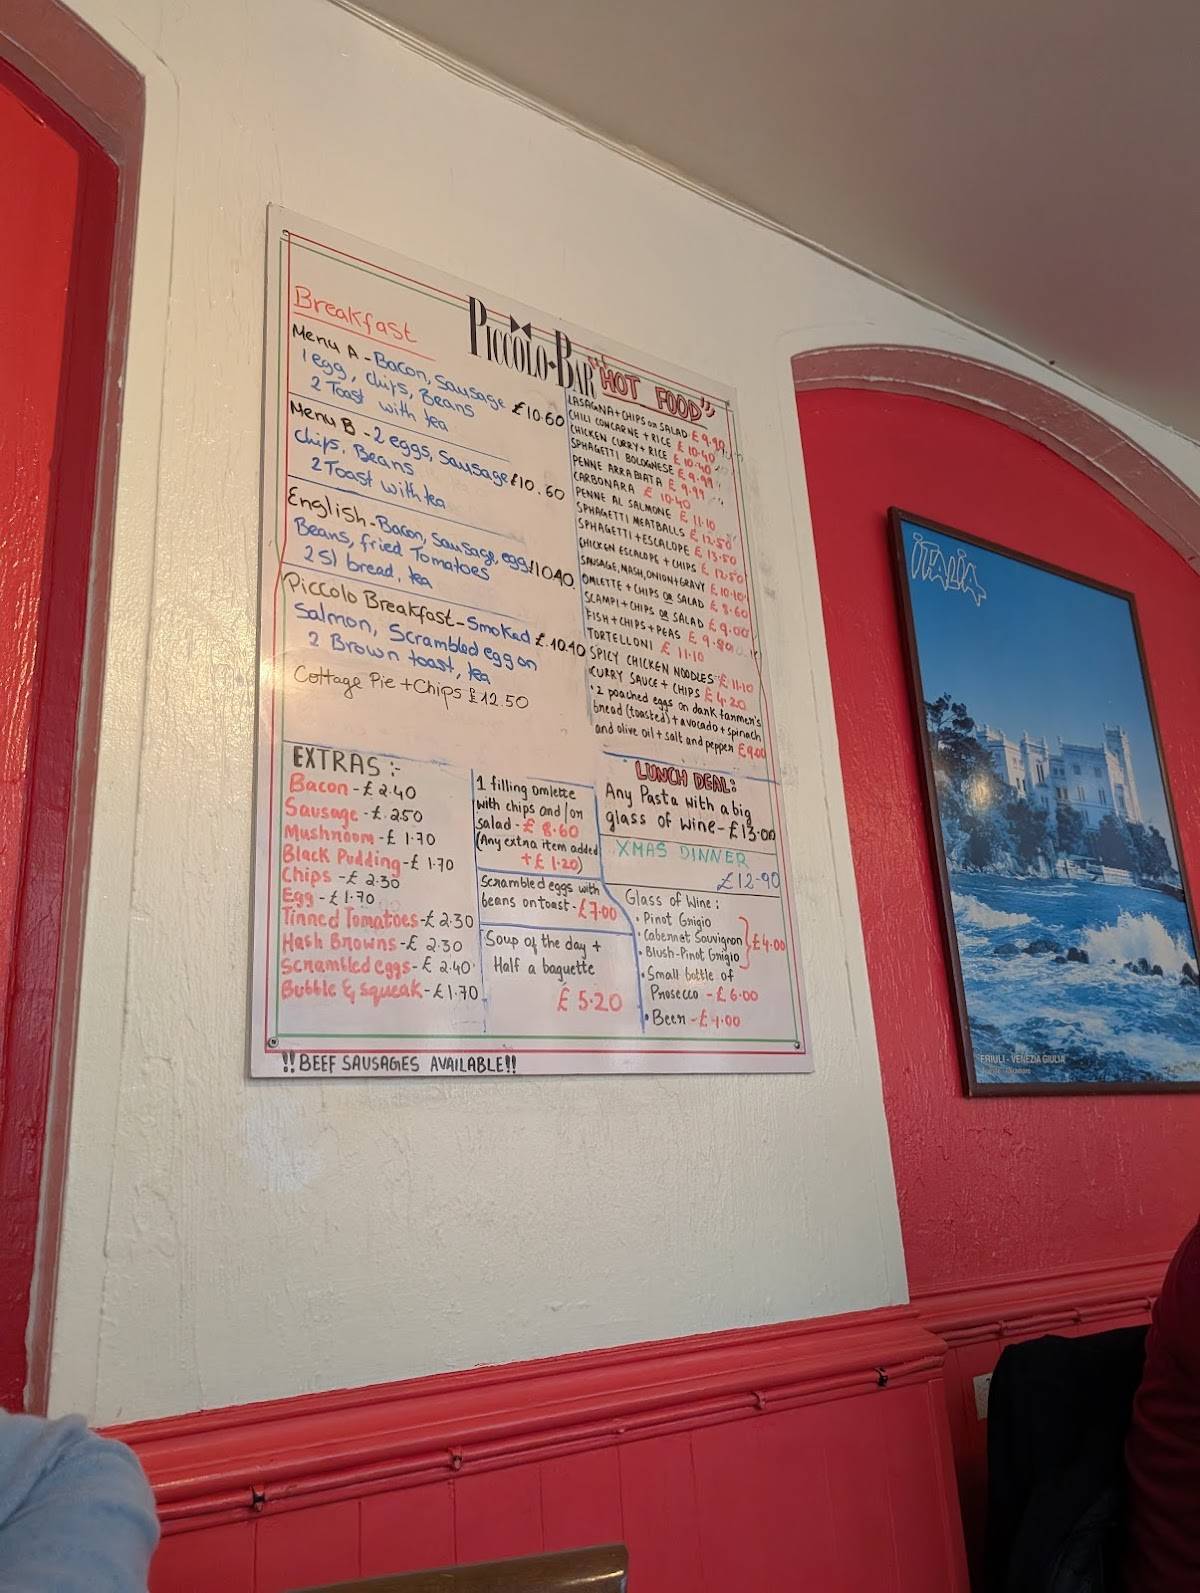 PICCOLO BAR
Breakfast
Menu A - Bacon, Sausage
1 egg, chips, Beans £10.60
2 Toast with tea
Menu B - 2 eggs, Sausage £10.60
chips, Beans
2 Toast with tea
English - Bacon, Sausage, egg £10.40
Beans, fried Tomatoes
2 Sl bread, tea
Piccolo Breakfast - Smoked £10.40
Salmon, Scrambled egg on
2 Brown toast, tea
Cottage Pie + Chips £12.50
"HOT FOOD"
LASAGNA + CHIPS OR SALAD £9.90
CHILI CONCARNE + RICE £10.40
CHICKEN CURRY + RICE £10.40
SPHAGETTI BOLOGNESE £9.99
PENNE ARRABIATA £9.99
CARBONARA £10.40
PENNE AL SALMONE £11.10
SPHAGETTI MEATBALLS £12.50
SPHAGETTI + ESCALOPE £13.50
CHICKEN ESCALOPE + CHIPS £12.50
SAUSAGE, MASH, ONION + GRAVY £10.10
OMLETTE + CHIPS OR SALAD £8.60
SCAMPI + CHIPS OR SALAD £9.00
FISH + CHIPS + PEAS £9.80
TORTELLONI £11.10
SPICY CHICKEN NOODLES £11.10
CURRY SAUCE + CHIPS £4.20
2 poached eggs on dark farmer's
bread (toasted) + avocado + spinach
and olive oil + salt and pepper £9.00
EXTRAS :-
Bacon - £2.40
Sausage - £2.50
Mushroom - £1.70
Black Pudding - £1.70
Chips - £2.30
Egg - £1.70
Tinned Tomatoes - £2.30
Hash Browns - £2.30
Scrambled eggs - £2.40
Bubble & squeak - £1.70
1 filling omlette
with chips and/or
salad - £8.60
(Any extra item added
+ £1.20)
Scrambled eggs with
beans on toast - £7.00
Soup of the day +
Half a baguette
£5.20
LUNCH DEAL:
Any Pasta with a big
glass of wine - £13.00
XMAS DINNER
£12.90
Glass of Wine:
• Pinot Grigio
• Cabernet Sauvignon £4.00
• Blush-Pinot Grigio
• Small bottle of
Prosecco - £6.00
• Beer - £4.00
!!BEEF SAUSAGES AVAILABLE!!
iTALiA
FRIULI - VENEZIA GIULIA